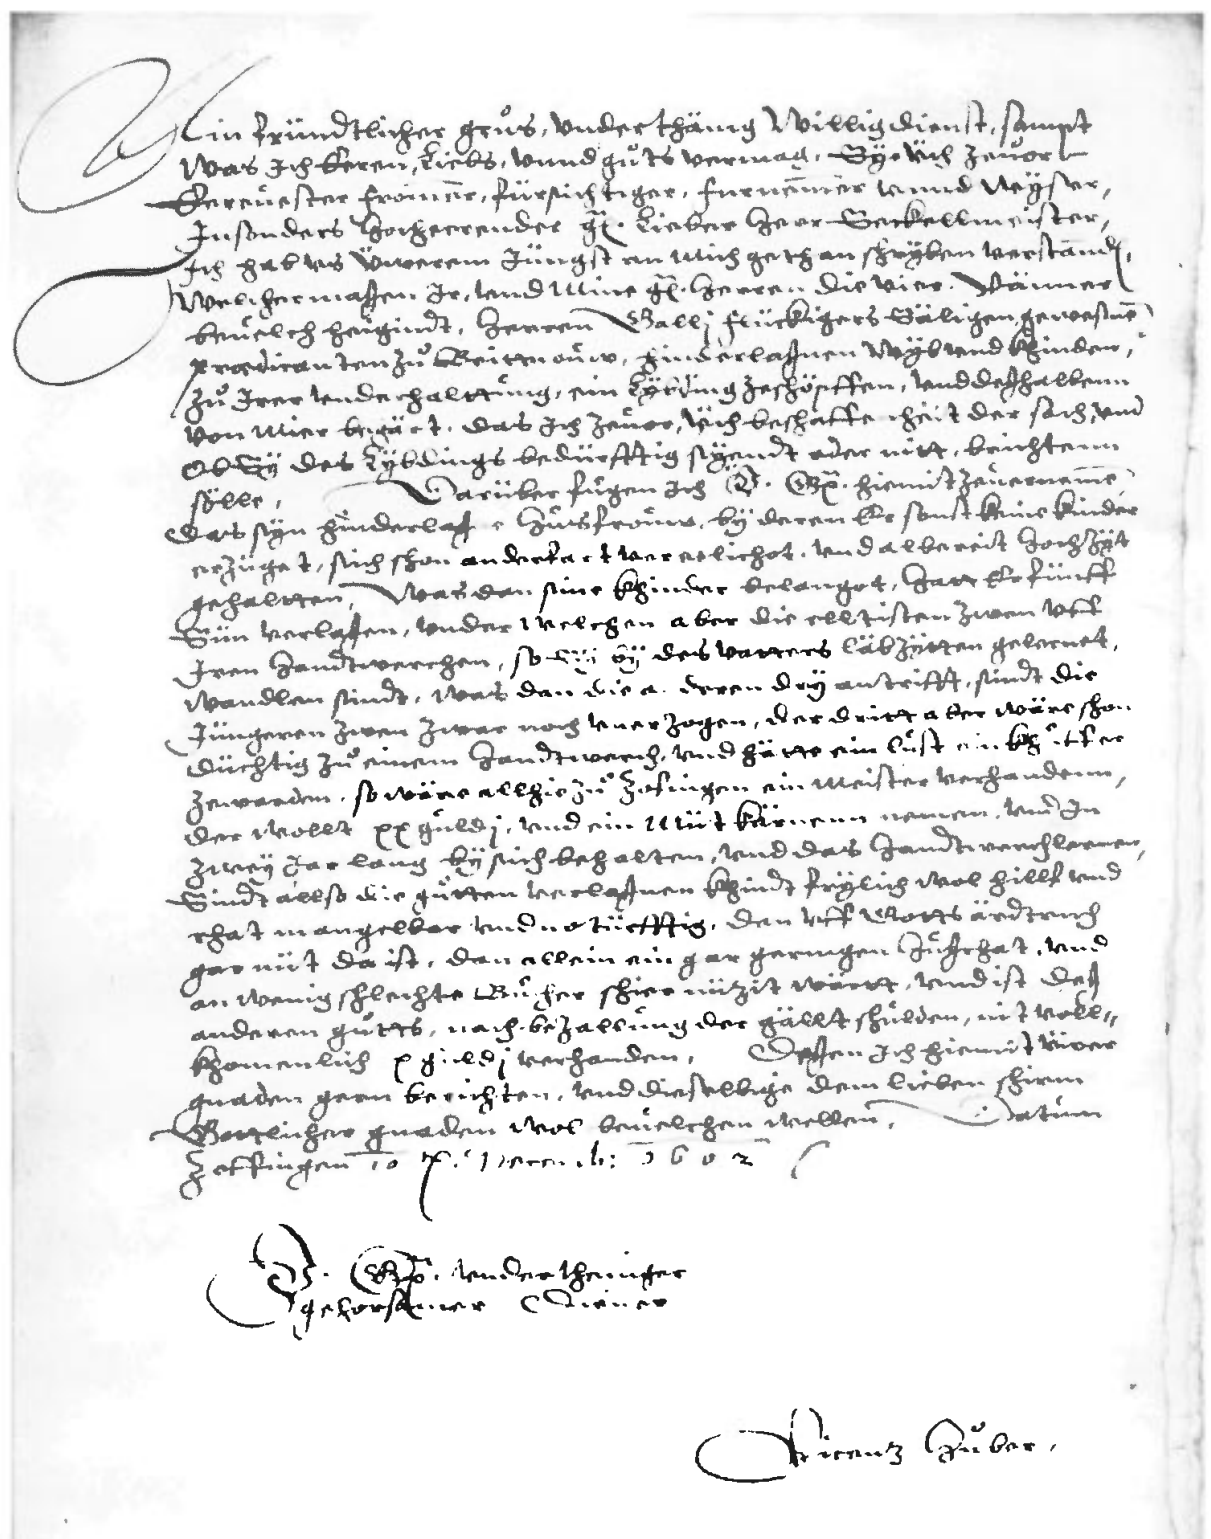 Min fründtlicher grůs, vnderthänig willig dienst, sampt
was ich Eeren, Liebs, vnnd gůts vermag, Sye üch zeuor
Eereuester fromer, fürsichtiger, furnemmer vnnd wyser,
Insonders hocheerender gn. Lieber herr Seckellmeister,
Ich hab vs üwerem Jüngst an mich gethan schryben verstand,
welchermaßen Ir, vnd mine gn. herren die vier Vänner
beuelch heigindt, herren Gallj flückigers Säligen gewesnen
prædicanten zů Brittnouw, hinderlaßnen wyb vnd khinden,
zů Irer vnderhalttung, ein Lybding zeschöpffen, vnd deßhalbenn
von mier begärt, das ich zeuor, üch beschaffenheit der sach, vnd
Ob Sy des Lybdings bedürfftig syendt oder nitt, brichtenn
sölle, Darüber fügen ich E. Gn. hiemit zeuernemen,
Das syn hinderlaßne husfrouw, by deren Er sonst keine kinder
erzüget, sich schon anderfart vereelichot, vnd albereit hochzyt
gehaltten, Was dan sine khinder belanget, hatt Er fünff
Sün verlaßen, vnder welchen aber die elltisten zwen vff
Iren handtwerchen, so sy by des vatters läbzytten gelernet,
wandlen sindt, was dan die anderen dry antrifft, sindt die
Jüngeren zwen zwar noch vnerzogen, der dritt aber wäre schon
düchtig zů einem handtwerch, vnd hätte ein lust ein khůffer
zewerden, so wäre allhie zů Zofingen ein meister verhandenn,
der wollt xx guldj, vnd ein Müt kärnenn nemen, vnd In
zwey Jar lang by sich behalten, vnd das handtwerch lernen,
Sindt allso die gůtten verlaßnen khindt frylich wol hillf vnd
rhat mangelbar vnd notürfftig, den vff Gotts ärdtrich
gar nüt da ist, dan allein ein gar geringen hußrhat, vnd
an wenig schlechte Bücher schier nüzit wärtt, vnd ist deß
anderen gůtts, nach bezallung der gällt schulden, nit voll=
khomenlich x guldj verhanden, Deßen ich hiemit üwer
gnaden gern berichten, vnd dieselbige dem lieben schirm
Gottlicher gnaden wol beuelchen wellen, Datum
Zoffingen 10 Decemb: 1602
E. Gn. vndertheniger
gehorsamer Diener
Vicentz Hůber,